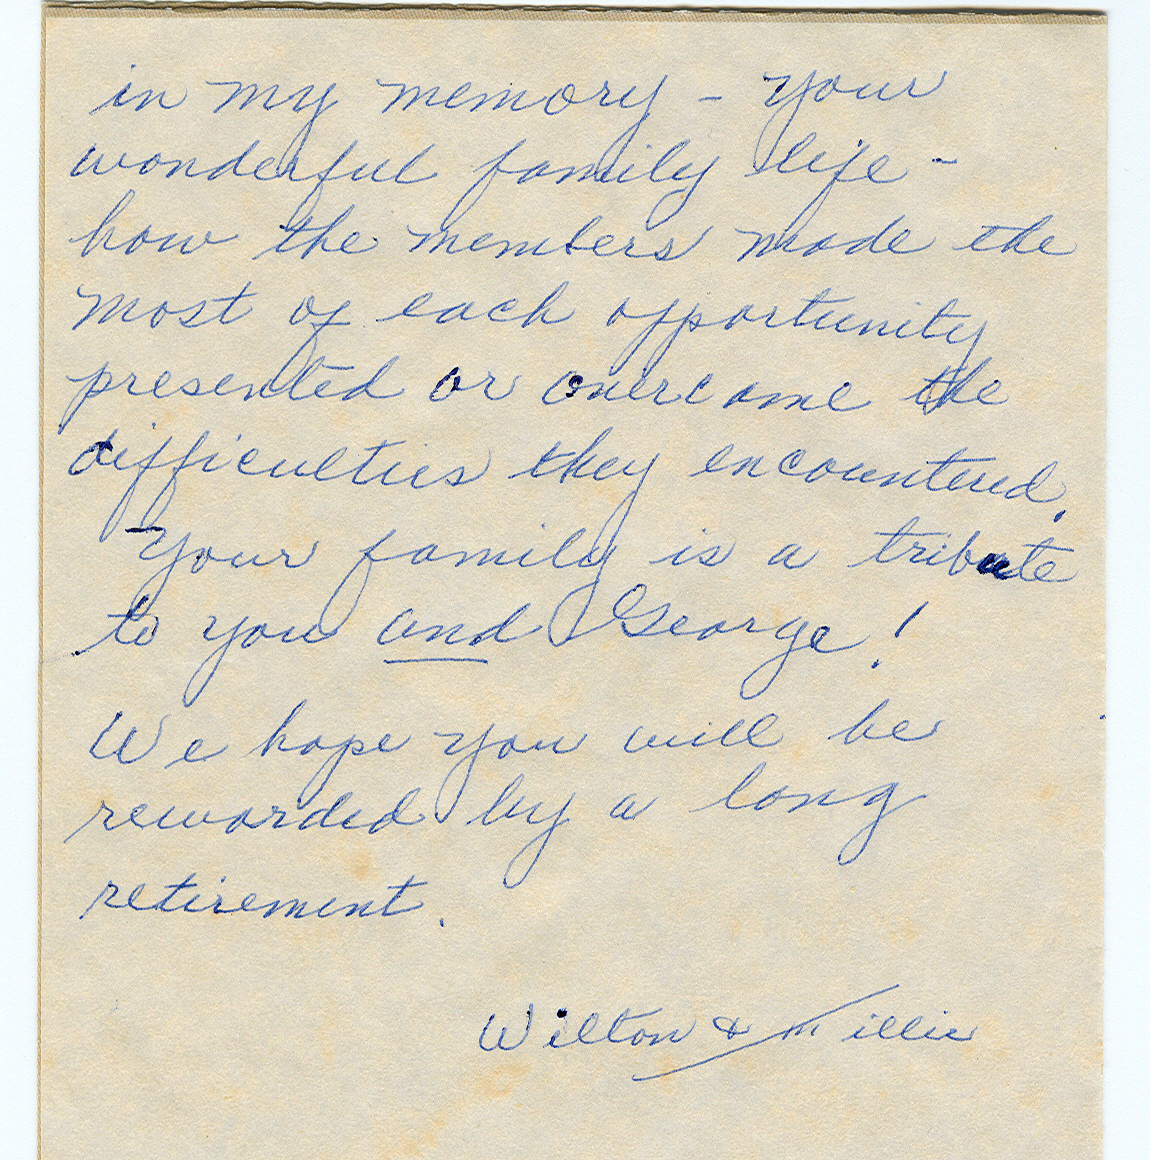 in my memory - your
wonderful family life -
how the members made the
most of each opportunity
presented or overcame the
difficulties they encountered.
Your family is a tribute
to you and George!
We hope you will be
rewarded by a long
retirement.
Wilton & Millie